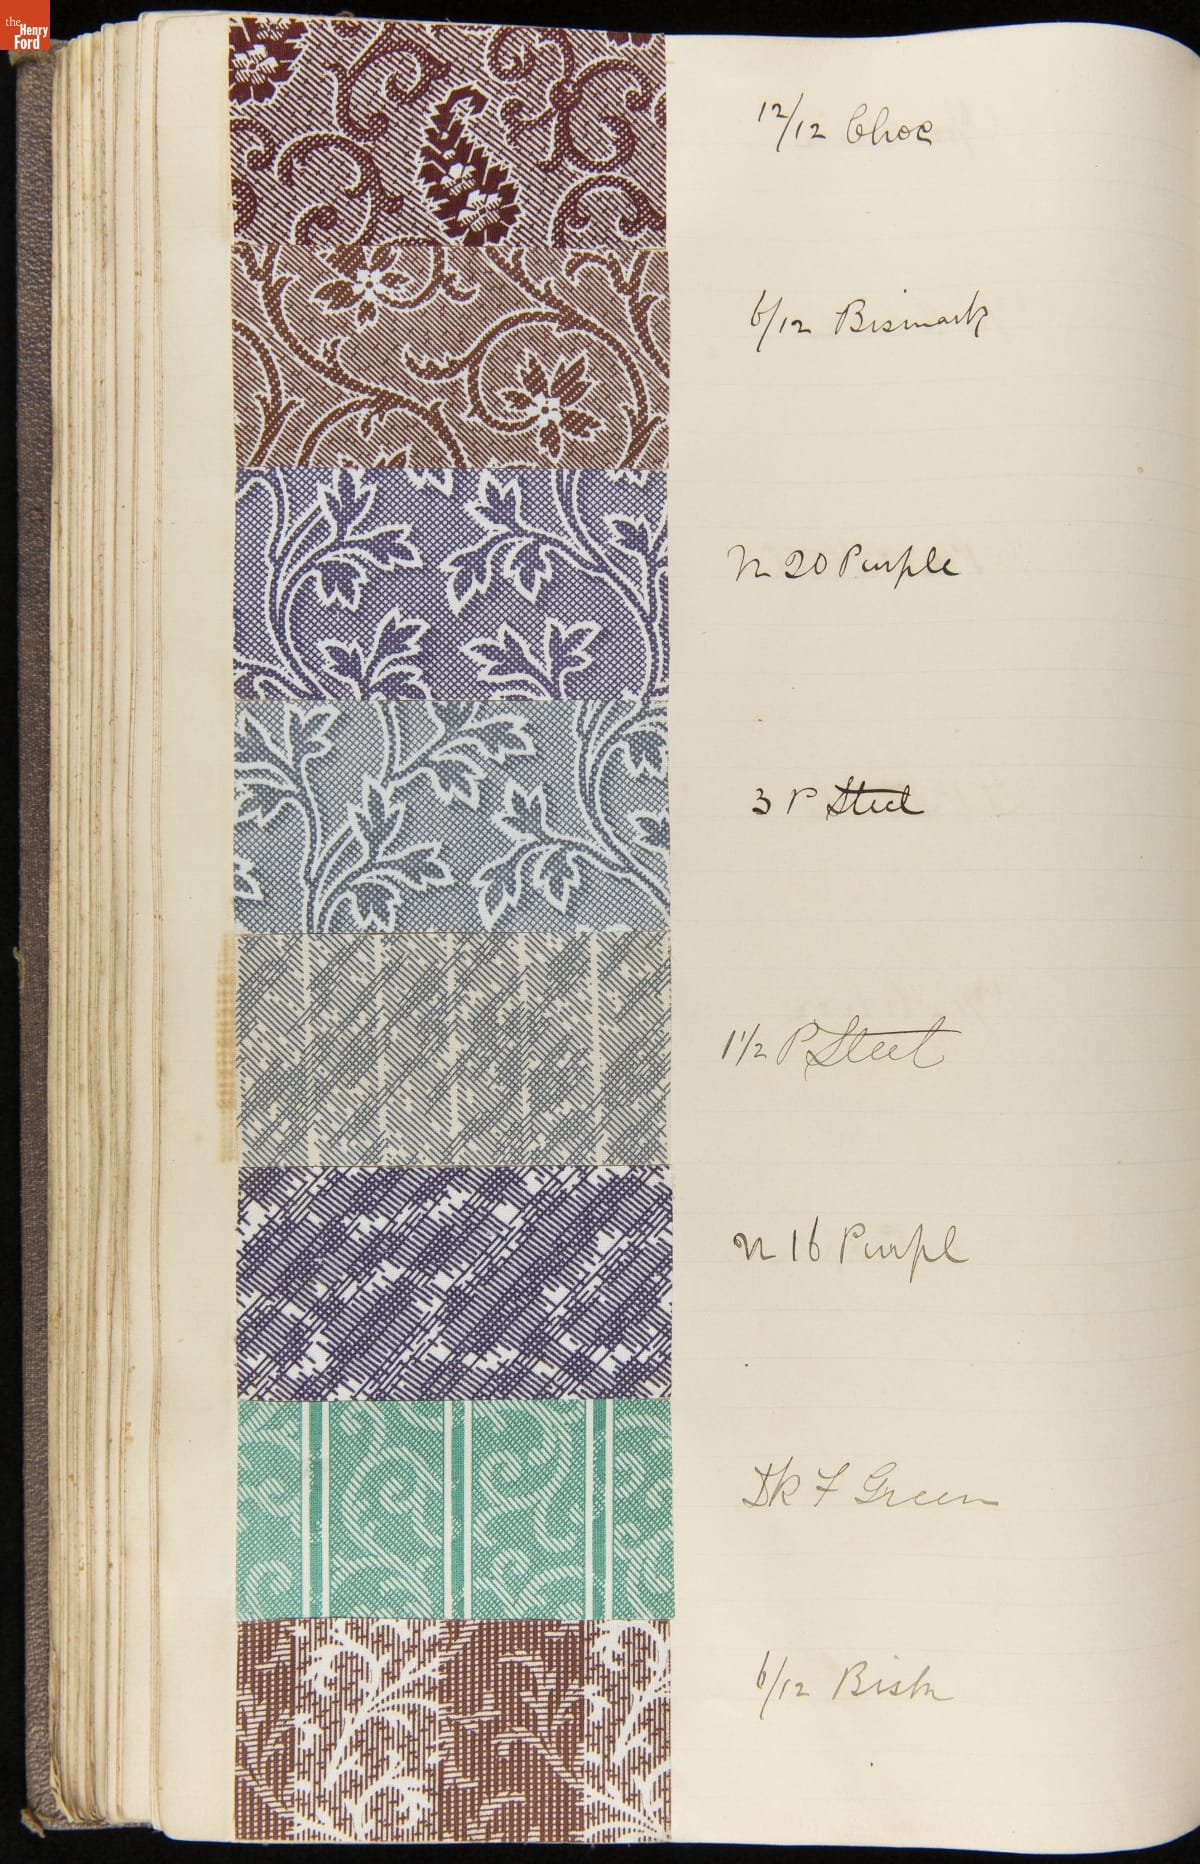 the
Henry
Ford
12/12 Choc
6/12 Bismark
N 20 Purple
3 P Steel
1 1/2 P Steel
N 16 Purpl
Dk F Green
6/12 Bism